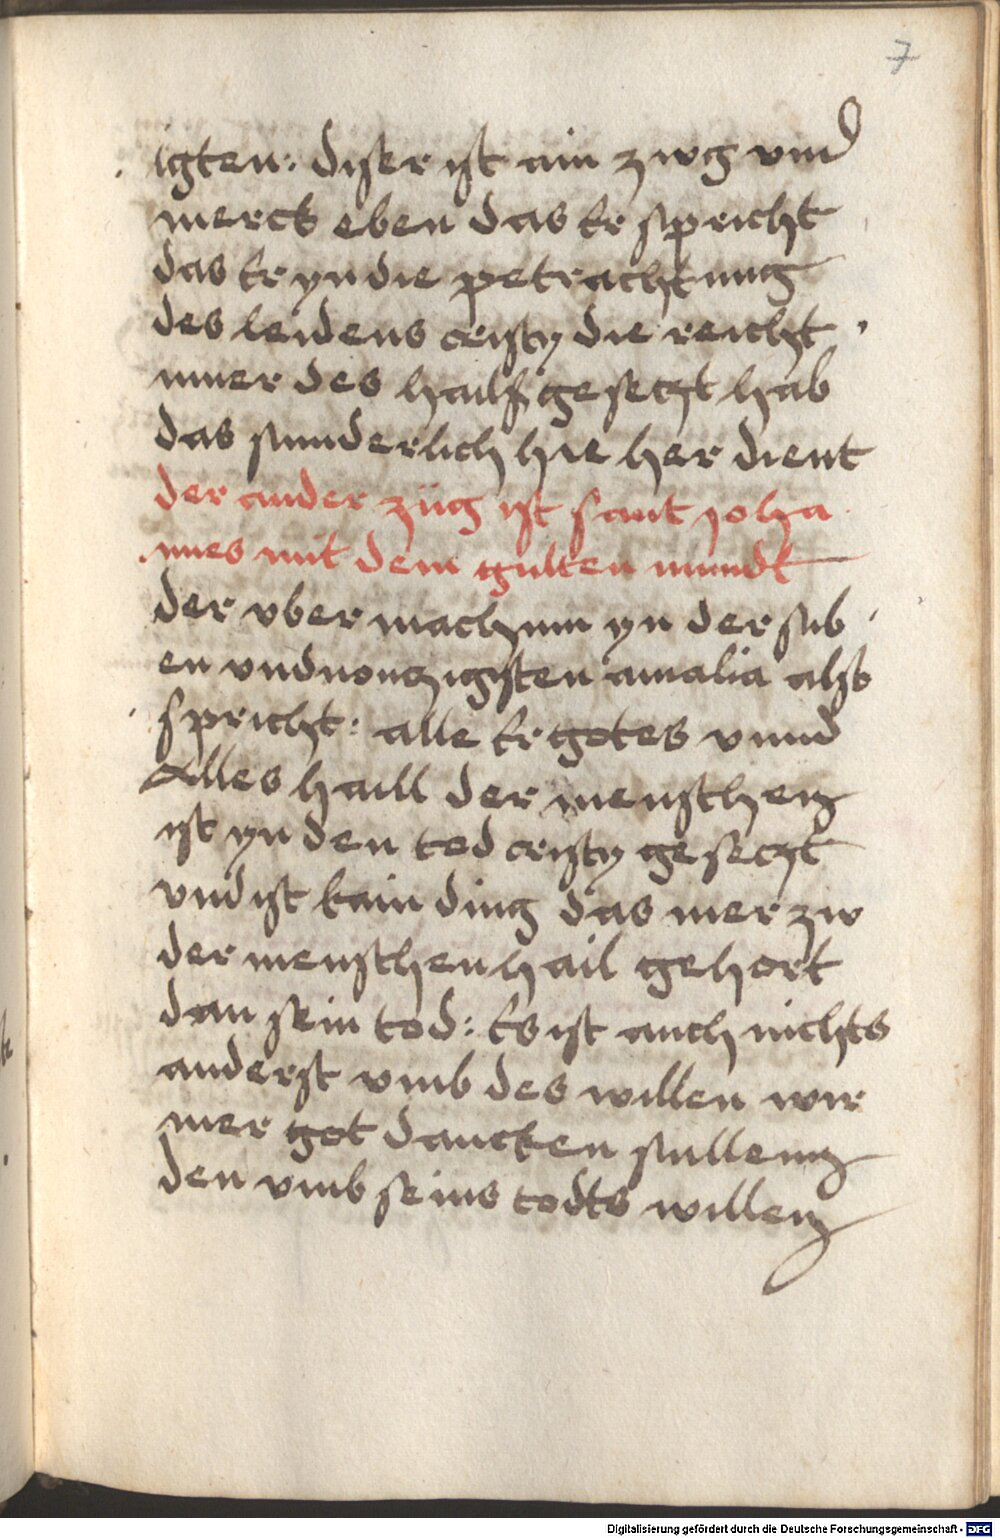 7
igten: diser ist ain zwg vnd
merck eben das Er spricht
das Er yn die petrachtnug
des leidens cristy die reicht
nuer des hails gesetzt hab
das sunderlich hie her dient
der ander züg ist sant joha
nnes mit dem gulten mundt
der vber machum yn der sub
en vnd nonczigisten amalia also
spricht: alle Er gotes vnnd
Alles haill der menschen
ist yn den tod cristy gesetzt
vnd ist kain ding das mer zw
der menschen hail gehort
dan sein tod: Es ist auch nichts
anderst vmb des willen wir
mer got dancken sullenn
den vmb seins todts willen
Digitalisierung gefördert durch die Deutsche Forschungsgemeinschaft - DFG